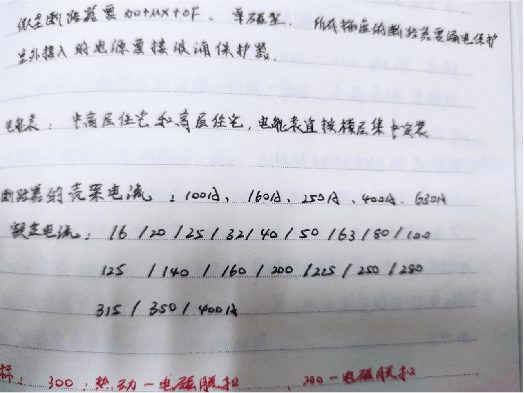 断路器要 MX+OF、单磁型、所有插座的断路器要漏电保护
室外接入的电源要接浪涌保护器.
电能表: 中高层住宅和高层住宅,电能表宜按楼层集中安装
断路器的壳架电流: 100A、160A、250A、400A、630A
额定电流: 16 / 20 / 25 / 32 / 40 / 50 / 63 / 80 / 100
125 / 140 / 160 / 200 / 225 / 250 / 280
315 / 350 / 400A
标: 300:热动-电磁脱扣、200-电磁脱扣